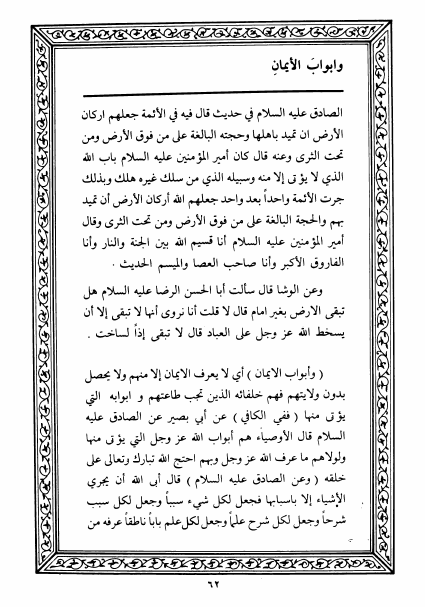 وابوابَ الأيمانِ
الصادق عليه السلام في حديث قال فيه في الأئمة جعلهم اركان
الأرض ان تميد باهلها وحجته البالغة على من فوق الأرض ومن
تحت الثرى وعنه قال كان أمير المؤمنين عليه السلام باب الله
الذي لا يؤتى إلا منه وسبيله الذي من سلك غيره هلك وبذلك
جرت الأئمة واحداً بعد واحد جعلهم الله أركان الأرض أن تميد
بهم والحجة البالغة على من فوق الأرض ومن تحت الثرى وقال
أمير المؤمنين عليه السلام أنا قسيم الله بين الجنة والنار وأنا
الفاروق الأكبر وأنا صاحب العصا والميسم الحديث .
وعن الوشا قال سألت أبا الحسن الرضا عليه السلام هل
تبقى الارض بغير امام قال لا قلت أنا نروى أنها لا تبقى إلا أن
يسخط الله عز وجل على العباد قال لا تبقى إذاً لساخت .
( وأبواب الايمان ) أي لا يعرف الايمان إلا منهم ولا يحصل
بدون ولايتهم فهم خلفائه الذين تجب طاعتهم و ابوابه التي
يؤتى منها ( ففي الكافي ) عن أبي بصير عن الصادق عليه
السلام قال الأوصياء هم أبواب الله عز وجل التي يؤتى منها
ولولاهم ما عرف الله عز وجل وبهم احتج الله تبارك وتعالى على
خلقه ( وعن الصادق عليه السلام ) قال أبى الله أن يجري
الإشياء إلا باسبابها فجعل لكل شيء سبباً وجعل لكل سبب
شرحاً وجعل لكل شرح علماً وجعل لكل علم باباً ناطقاً عرفه من
٦٢